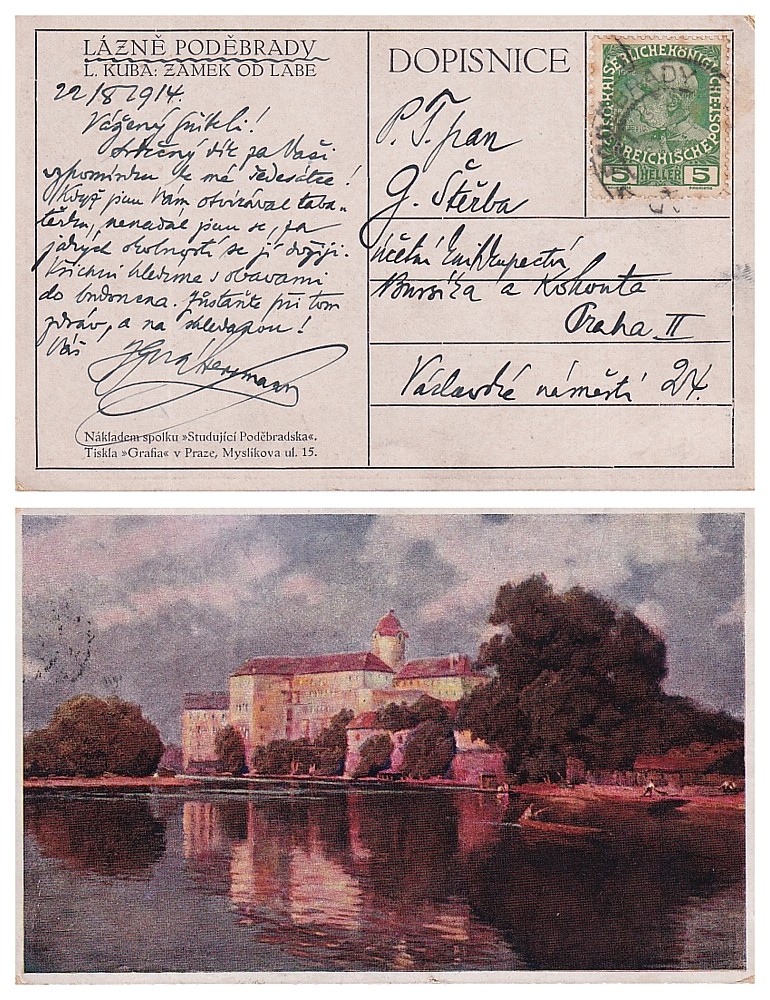 LÁZNĚ PODĚBRADY
L. KUBA: ZÁMEK OD LABE
22/8 1914.
Vážený příteli!
Srdečný dík za Vaši
vzpomínku k mé šedesátce!
Když jsem Vám otvírával taba-
těrku, nenadál jsem se, za
jakých okolností se jí dožiji.
Všichni hledíme s obavami
do budoucna. Zůstaňte při tom
zdráv, a na shledanou!
Váš
Ignát Herrmann
Nákladem spolku »Studující Poděbradska«.
Tiskla »Grafia« v Praze, Myslíkova ul. 15.
DOPISNICE
P. T. pan
G. Štěrba
účetní knihkupectví
Bursíka a Kohouta
Praha II
Václavské náměstí 24.
KAISERLICHE KÖNIGLICHE
ÖSTERREICHISCHE POST
5 HELLER 5